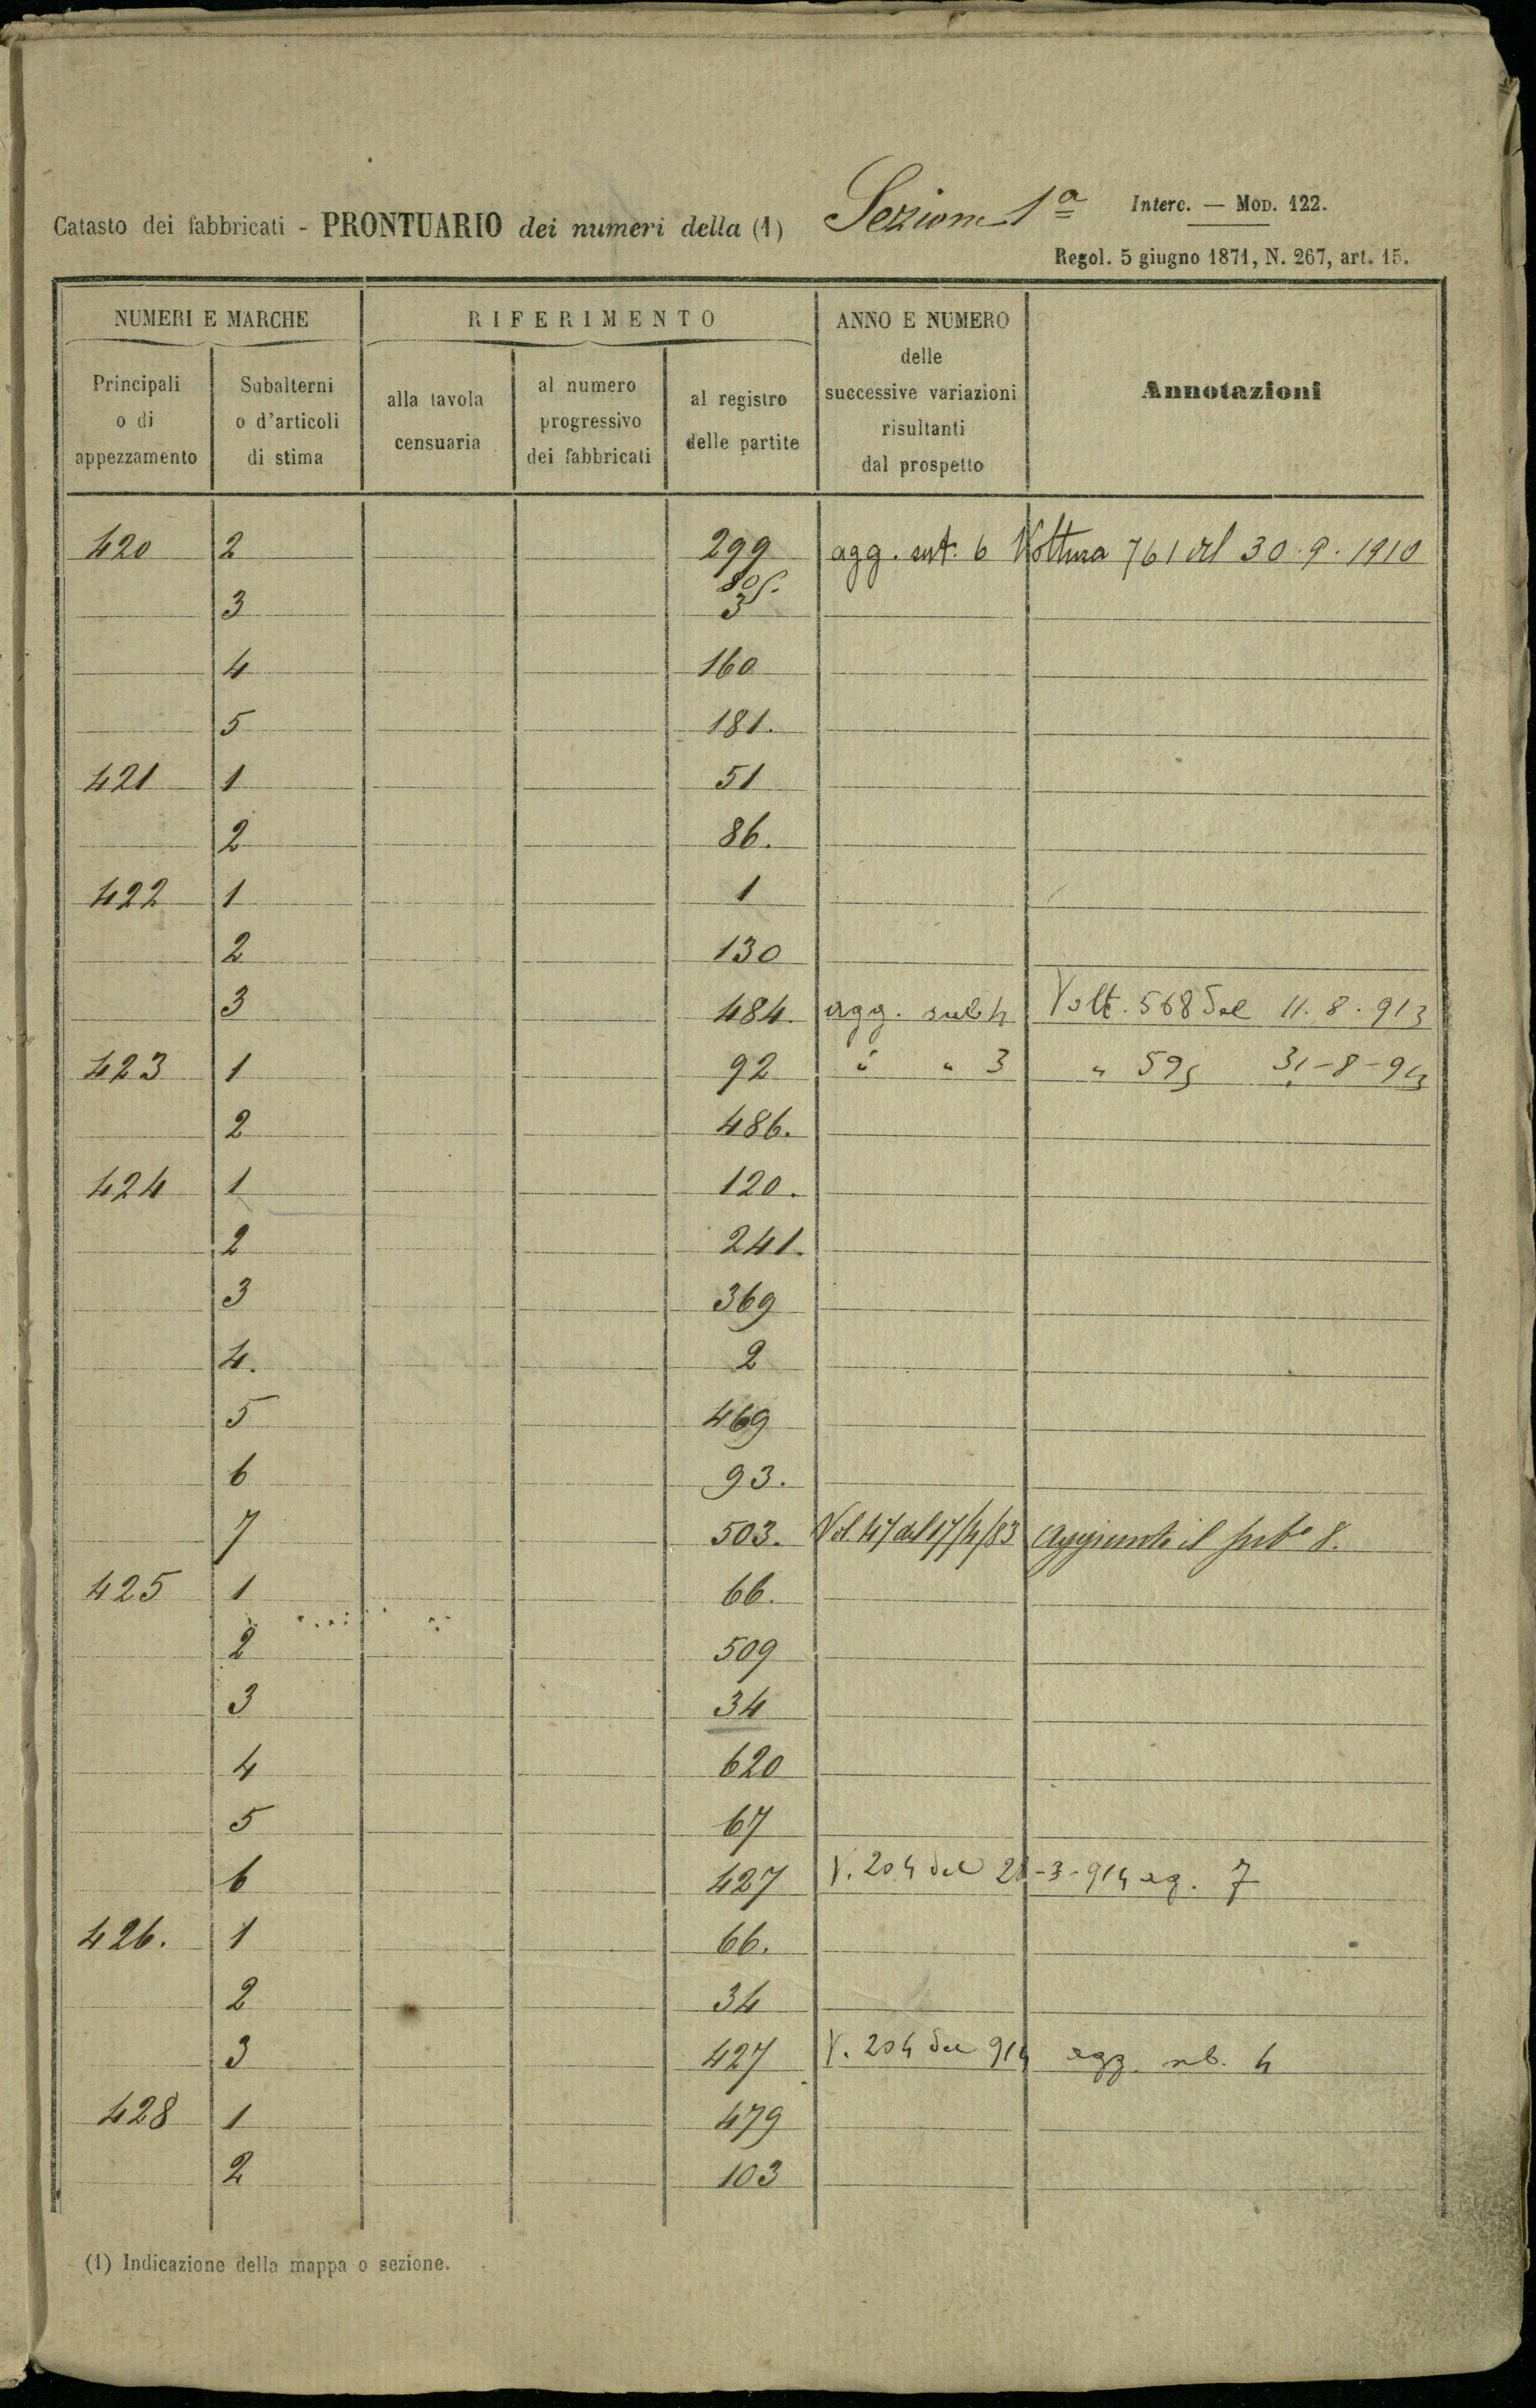 Catasto dei fabbricati - PRONTUARIO dei numeri della (1) Sezione 1ª
Interc. — MOD. 122.
Regol. 5 giugno 1871, N. 267, art. 15.
NUMERI E MARCHE
Principali o di appezzamento
Subalterni o d'articoli di stima
RIFERIMENTO
alla tavola censuaria
al numero progressivo dei fabbricati
al registro delle partite
ANNO E NUMERO delle successive variazioni risultanti dal prospetto
Annotazioni
420 2 299 agg. sub. 6 Voltura 761 del 30.9.1910
3 3
4 160
5 181.
421 1 51
2 86.
422 1 1
2 130
3 484. agg. sub 4 Volt. 568 del 11.8.913
423 1 92 " " 3 " 595 31-8-913
2 486.
424 1 120.
2 241.
3 369
4. 2
5 469
6 93.
7 503. Vol. 47 del 17/4/83 Aggiunto il sub° 8.
425 1 66.
2 509
3 34
4 620
5 67
6 427 V. 204 del 28-3-914 ag. 7
426. 1 66.
2 34
3 427 V. 204 del 914 agg. sub. 4
428 1 479
2 103
(1) Indicazione della mappa o sezione.